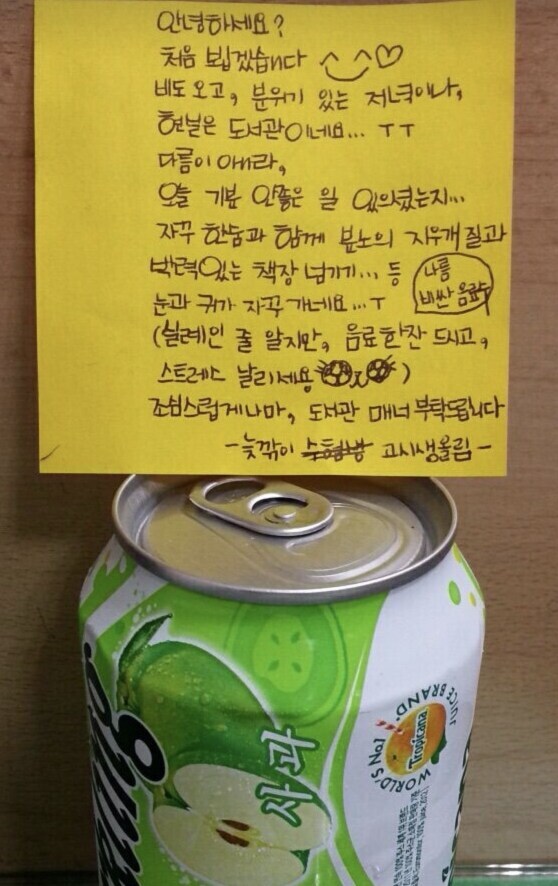 안녕하세요?
처음 뵙겠습니다 ^‿^♡
비도 오고, 분위기 있는 저녁이나,
현실은 도서관이네요... ㅜㅜ
다름이 아니라,
오늘 기분 안좋은 일 있으셨는지...
자꾸 한숨과 함께 분노의 지우개 질과
박력있는 책장 넘기기... 등
눈과 귀가 자꾸 가네요...ㅜ
나름
비싼 음료수
(실례인 줄 알지만, 음료한잔 드시고,
스트레스 날리세용)
조심스럽게나마, 도서관 매너 부탁드립니다
-늦깎이 수험생 고시생올림-
사과
WORLD'S No1
JUICE BRAND.
Tropicana